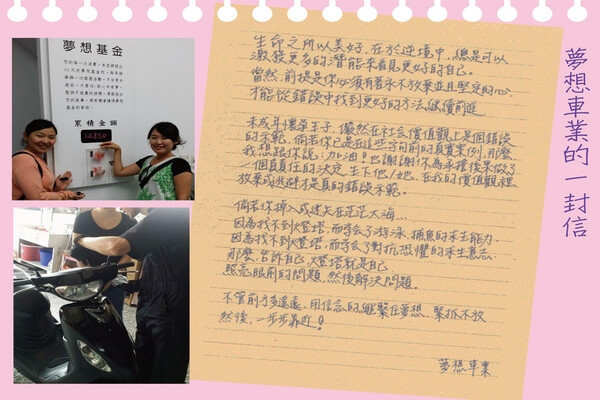 夢想基金
累積金額
夢想車業的一封信
生命之所以美好,在於逆境中,總是可以
激發更多的潛能來看見更好的自己。
當然,前提是你必須有著永不放棄並且堅定的心,
才能從錯誤中找到更好的方法,繼續前進.
未成年懷孕生子,儼然在社會價值觀上是個錯誤
的示範,倘若你已是在這些字句前的真實案例,那麼
我想跟你說:加油!也謝謝你為求種後果做了
一個負責任的決定,生下他/她.在我的價值觀裡,
放棄或逃避才是真的錯誤示範。
倘若你掉入或迷失在茫茫大海...
因為找不到燈塔,而學會了游泳、捕魚的求生能力.
因為找不到燈塔,而學會了對抗恐懼的求生意志.
那麼,告訴自己,燈塔就是自己.
照亮眼前的問題,然後解決問題.
不管前方多遙遠,用信念的繩繫在夢想,緊抓不放
然後,一步步靠近!
夢想車業